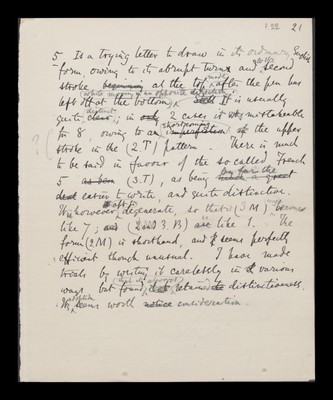 7.22 21
5 Is a trying letter to draw in its ordinary English
form, owing to its abrupt turns and second
stroke beginning at the top after the pen has
left off at the bottom. It is usually
quite distinct; in only 2 cases is it mistakeable
for 8, owing to an of the upper
stroke in the (2.T) pattern There is much
to be said in favour of the so called French
5 (3.T), as being by far the
easier to write, and quite distinctive.
however degenerate, so that (3 M)
like 7; and (2 and 3. B) are like 1. The
form (2M) is shorthand, and seems perfectly
efficient though unusual. I have made
trials by writing it carelessly in various
ways but found retained its distinctiveness.
seems worth notice consideration.